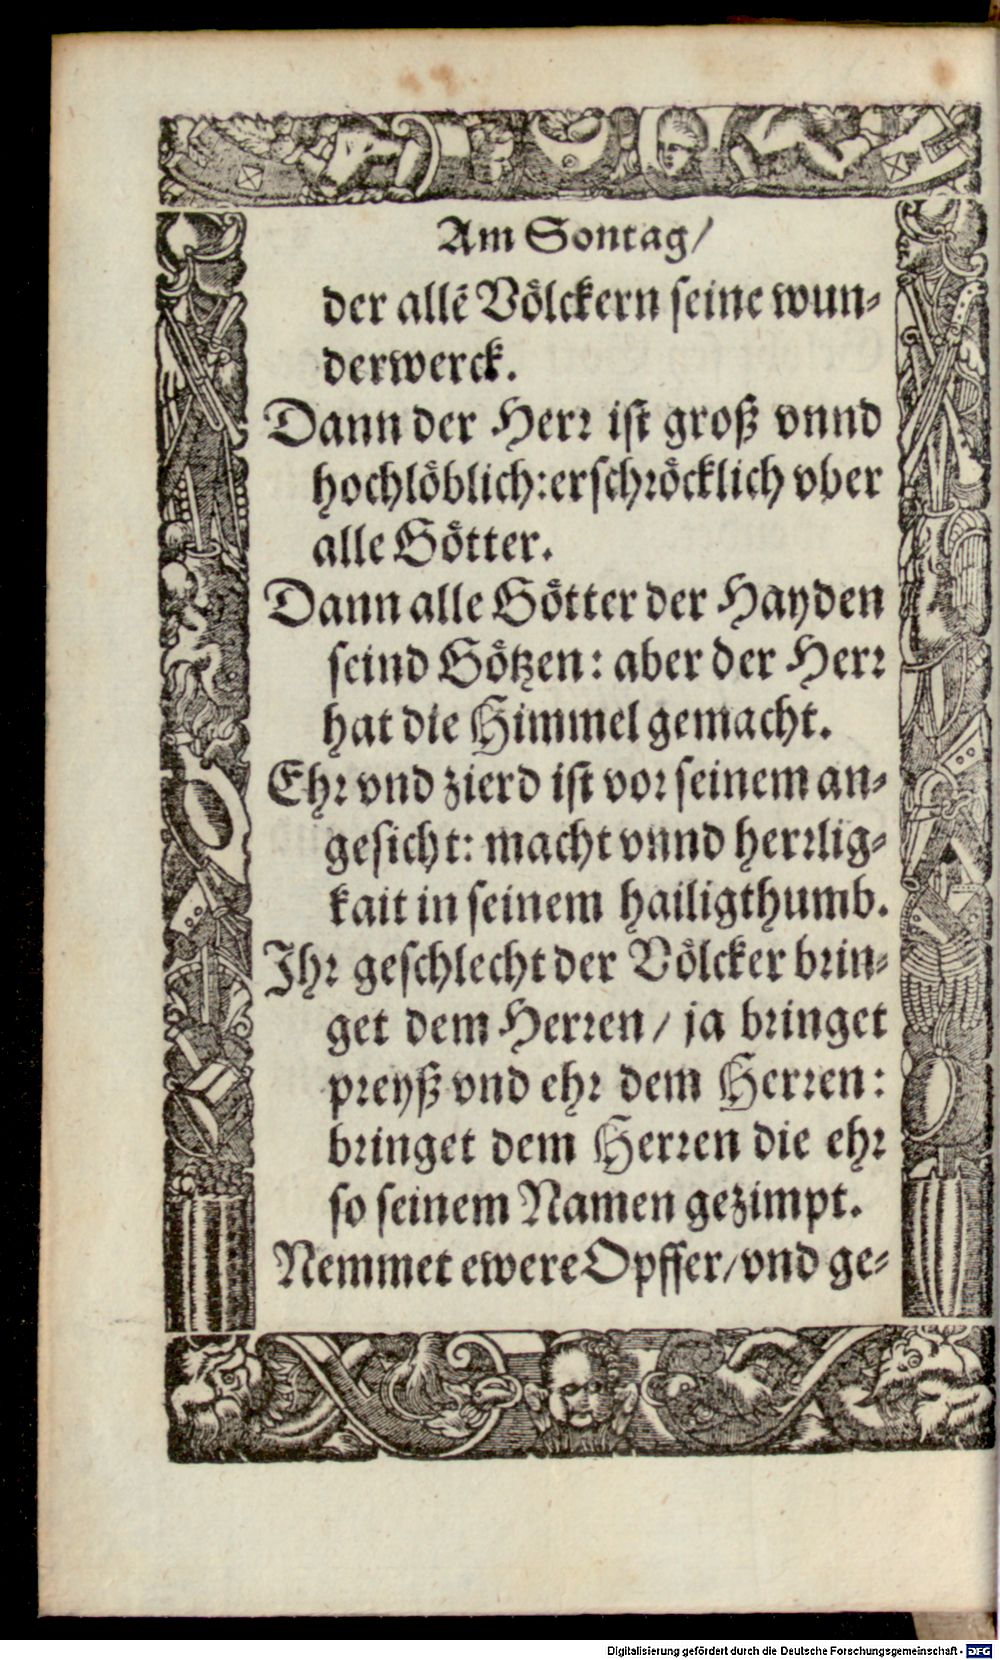 Am Sontag/
der allē Völckern seine wun-
derwerck.
Dann der Herr ist groß vnnd
hochlöblich: erschröcklich vber
alle Götter.
Dann alle Götter der Hayden
seind Götzen: aber der Herr
hat die Himmel gemacht.
Ehr vnd zierd ist vor seinem an-
gesicht: macht vnnd herrlig-
kait in seinem hailigthumb.
Ihr geschlecht der Völcker brin-
get dem Herren/ ja bringet
preyß vnd ehr dem Herren:
bringet dem Herren die ehr
so seinem Namen gezimpt.
Nemmet ewere Opffer/ vnd ge-
Digitalisierung gefördert durch die Deutsche Forschungsgemeinschaft - DFG